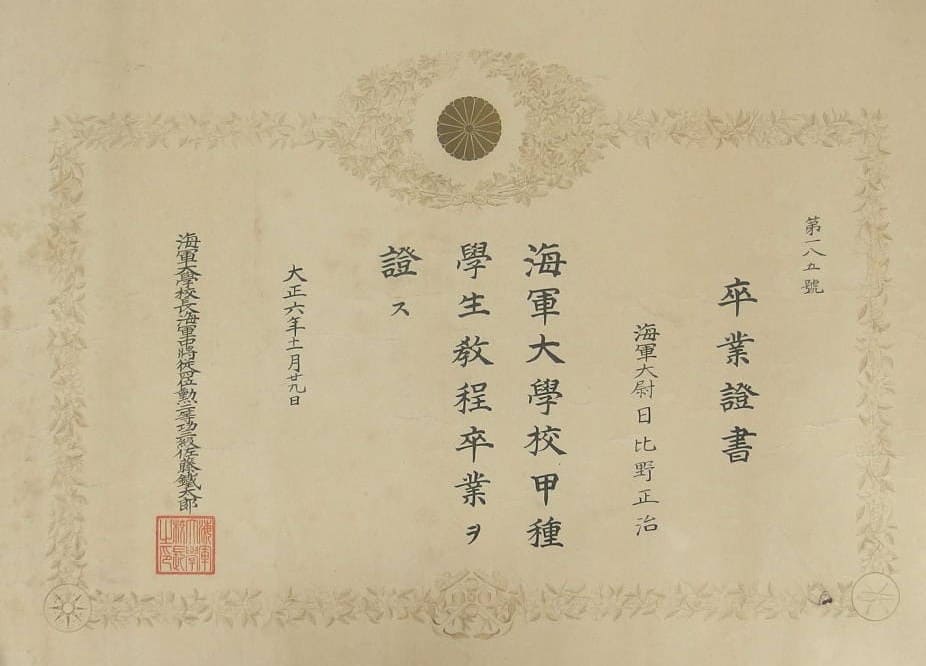 第一八五號
卒業證書
海軍大尉日比野正治
海軍大學校甲種
學生教程卒業ヲ
證ス
大正六年十一月廿九日
海軍大學校長海軍中將從四位勲二等功三級佐藤鐵太郎
海軍大學校長之印